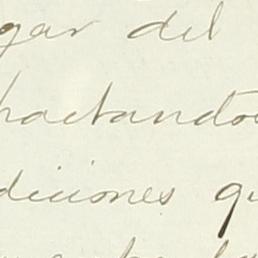 gar del
hactando
diciones qu